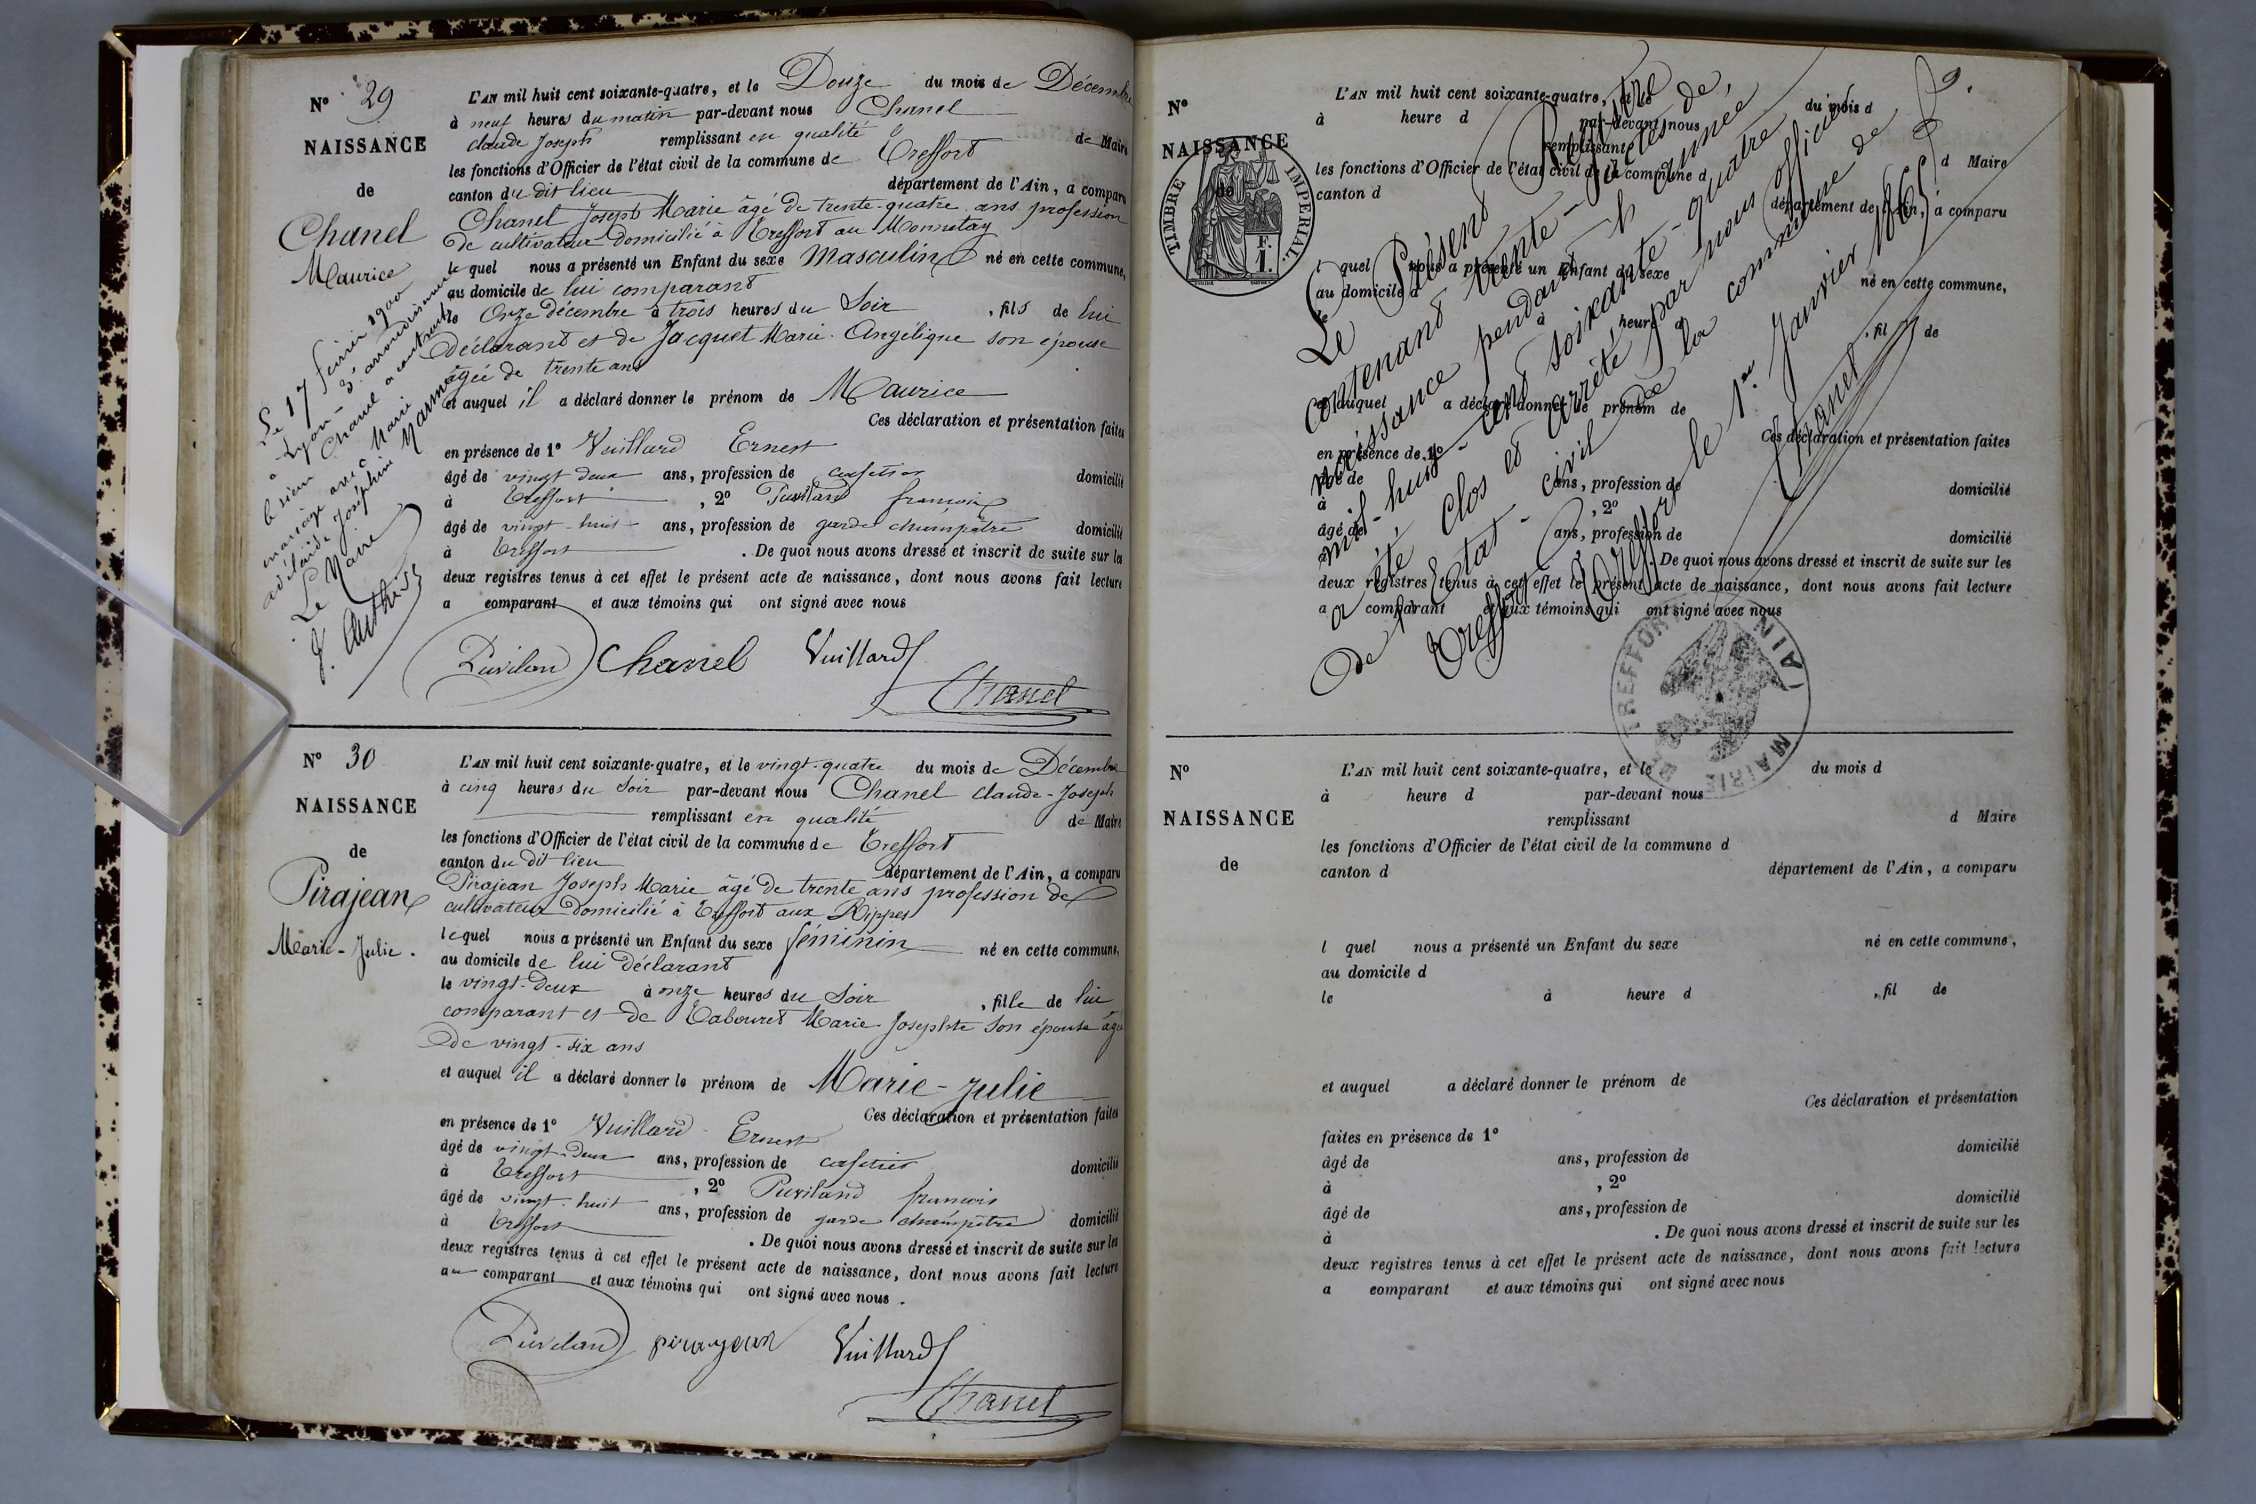 N° 29
NAISSANCE
de
Chanel
Maurice
L'AN mil huit cent soixante-quatre, et le Douze du mois de Décembre
à neuf heures du matin par-devant nous Chanel
claude Joseph remplissant en qualité de Maire
les fonctions d'Officier de l'état civil de la commune de Treffort
canton du dit lieu département de l'Ain, a comparu
Chanel Joseph Marie âgé de trente-quatre ans profession
de cultivateur domicilié à Treffort au Monnetay
le quel nous a présenté un Enfant du sexe Masculin né en cette commune,
au domicile de lui comparant
le Onze décembre à trois heures du Soir , fils de lui
déclarant et de Jacquet Marie-Angélique son épouse
âgée de trente ans
et auquel il a déclaré donner le prénom de Maurice
Ces déclaration et présentation faites
en présence de 1° Vuillard Ernest
âgé de vingt deux ans, profession de cafetier domicilié
à Treffort , 2° Puvilland françois
âgé de vingt-huit ans, profession de garde champêtre domicilié
à Treffort . De quoi nous avons dressé et inscrit de suite sur les
deux registres tenus à cet effet le présent acte de naissance, dont nous avons fait lecture
a comparant et aux témoins qui ont signé avec nous
Puvilan Chanel Vuillard
Chanel
Le 17 février 1900
à Lyon - 3e arrondissement
le sieur Chanel a contracté
mariage avec Marie
adélaïde Joséphine
Le Maire
N° 30
NAISSANCE
de
Pirajean
Marie-Julie.
L'AN mil huit cent soixante-quatre, et le vingt-quatre du mois de Décembre
à cinq heures du Soir par-devant nous Chanel claude-Joseph
remplissant en qualité de Maire
les fonctions d'Officier de l'état civil de la commune de Treffort
canton du dit lieu département de l'Ain, a comparu
Pirajean Joseph Marie âgé de trente ans profession de
cultivateur domicilié à Treffort aux Rippes
le quel nous a présenté un Enfant du sexe féminin né en cette commune,
au domicile de lui déclarant
le vingt-deux à onze heures du Soir , fille de lui
comparant et de Tabouret Marie-Josephte son épouse âgée
de vingt-six ans
et auquel il a déclaré donner le prénom de Marie-Julie
Ces déclaration et présentation faites
en présence de 1° Vuillard Ernest
âgé de vingt-deux ans, profession de cafetier domicilié
à Treffort , 2° Puvilland françois
âgé de vingt-huit ans, profession de garde champêtre domicilié
à Treffort . De quoi nous avons dressé et inscrit de suite sur les
deux registres tenus à cet effet le présent acte de naissance, dont nous avons fait lecture
au comparant et aux témoins qui ont signé avec nous .
Puvilan pirajean Vuillard
Chanel
N°
NAISSANCE
de
TIMBRE IMPERIAL.
F. I.
L'AN mil huit cent soixante-quatre, et le du mois d
à heure d par-devant nous
remplissant d Maire
les fonctions d'Officier de l'état civil de la commune d
canton d département de l'Ain, a comparu
l quel nous a présenté un Enfant du sexe né en cette commune,
au domicile d
le à heure d , fil de
et auquel a déclaré donner le prénom de
Ces déclaration et présentation faites
en présence de 1°
âgé de ans, profession de domicilié
à , 2°
âgé de ans, profession de domicilié
à . De quoi nous avons dressé et inscrit de suite sur les
deux registres tenus à cet effet le présent acte de naissance, dont nous avons fait lecture
a comparant et aux témoins qui ont signé avec nous
Le Présent Registre
contenant trente actes de
naissance pendant l'année
mil-huit-cent soixante-quatre
a été clos et arrêté par nous officier
de l'Etat-civil de la commune de
Treffort Treffort le 1er Janvier 1865
Chanel
MAIRIE DE TREFFORT (AIN)
N°
NAISSANCE
de
L'AN mil huit cent soixante-quatre, et le du mois d
à heure d par-devant nous
remplissant d Maire
les fonctions d'Officier de l'état civil de la commune d
canton d département de l'Ain, a comparu
l quel nous a présenté un Enfant du sexe né en cette commune,
au domicile d
le à heure d , fil de
et auquel a déclaré donner le prénom de
Ces déclaration et présentation
faites en présence de 1°
âgé de ans, profession de domicilié
à , 2°
âgé de ans, profession de domicilié
à . De quoi nous avons dressé et inscrit de suite sur les
deux registres tenus à cet effet le présent acte de naissance, dont nous avons fait lecture
a comparant et aux témoins qui ont signé avec nous